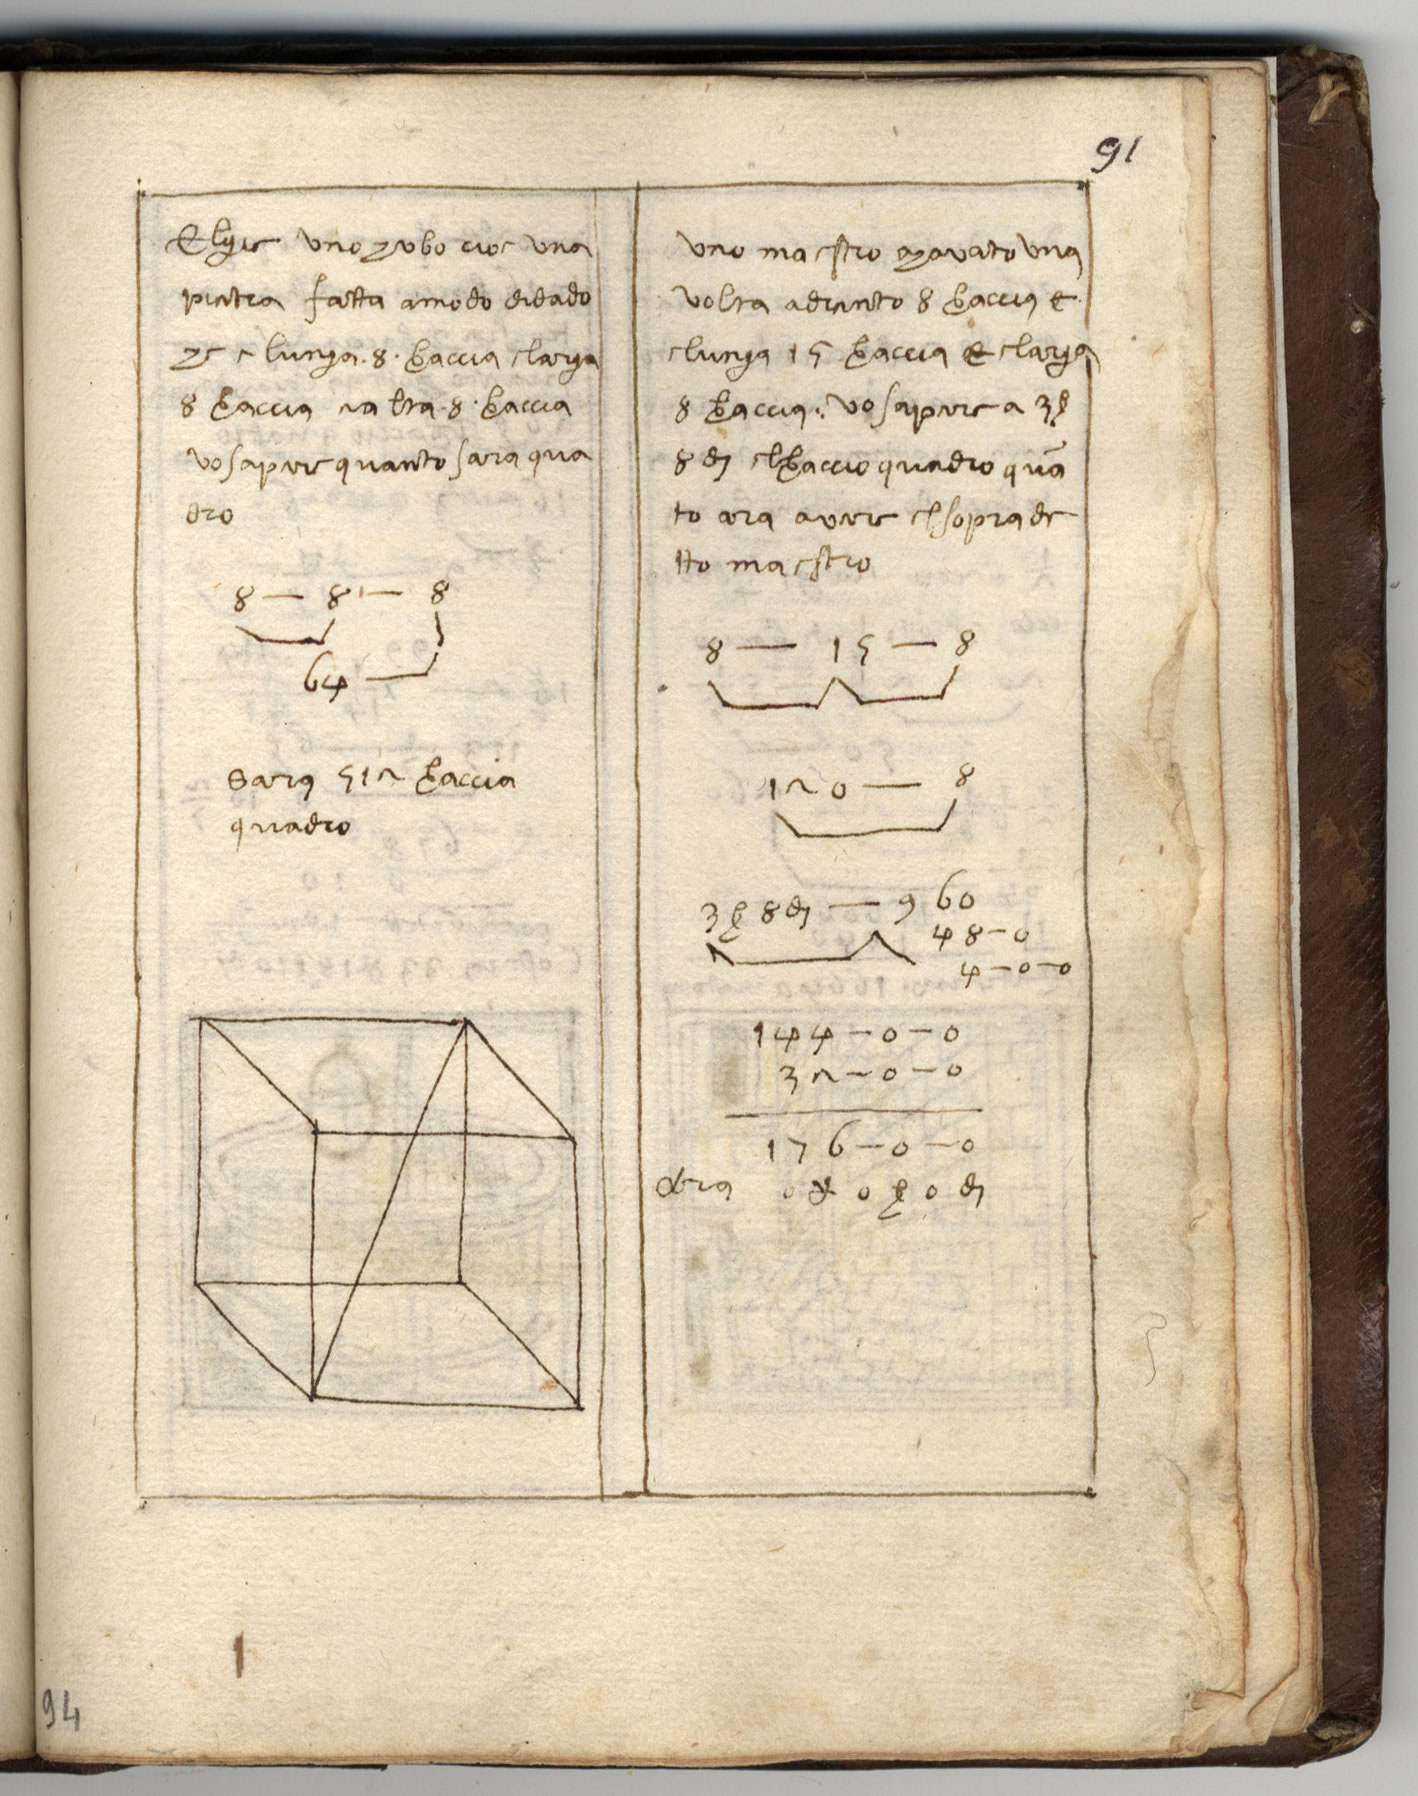 91
Elgie uno zubo cioe una
pietra fatta amodo didado
ze e lunga .8. braccia elarga
8 braccia ealta .8. braccia
vo sapere quanto sara qua
dro
8 — 8 — 8
64
Sara 512 braccia
quadro
uno maestro azavato una
volta adrento 8 braccia e
elunga 15 braccia e elarga
8 braccia. vo sapere a 3 ß
8 d elbraccio quadro quā
to ara avere elsoprade
tto maestro
8 — 15 — 8
120 — 8
3 ß 8 d — 960
48-0
4-0-0
144-0-0
32-0-0
176-0-0
ara 0 0 ß 0 d
94